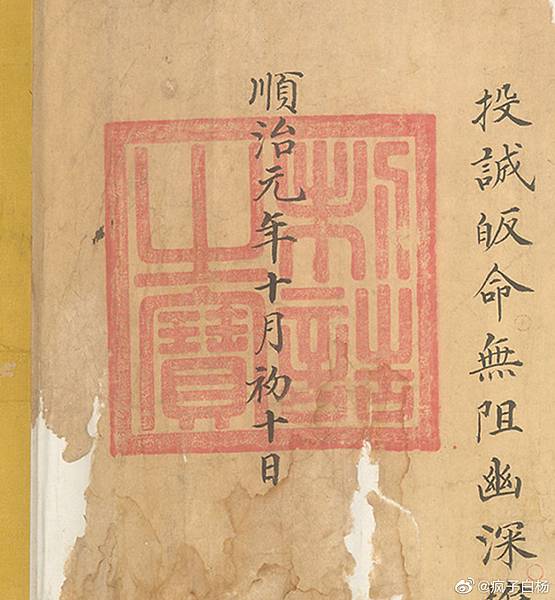 投誠皈命無阻幽深
順治元年十月初十日
制誥之寶
@疯子白杨